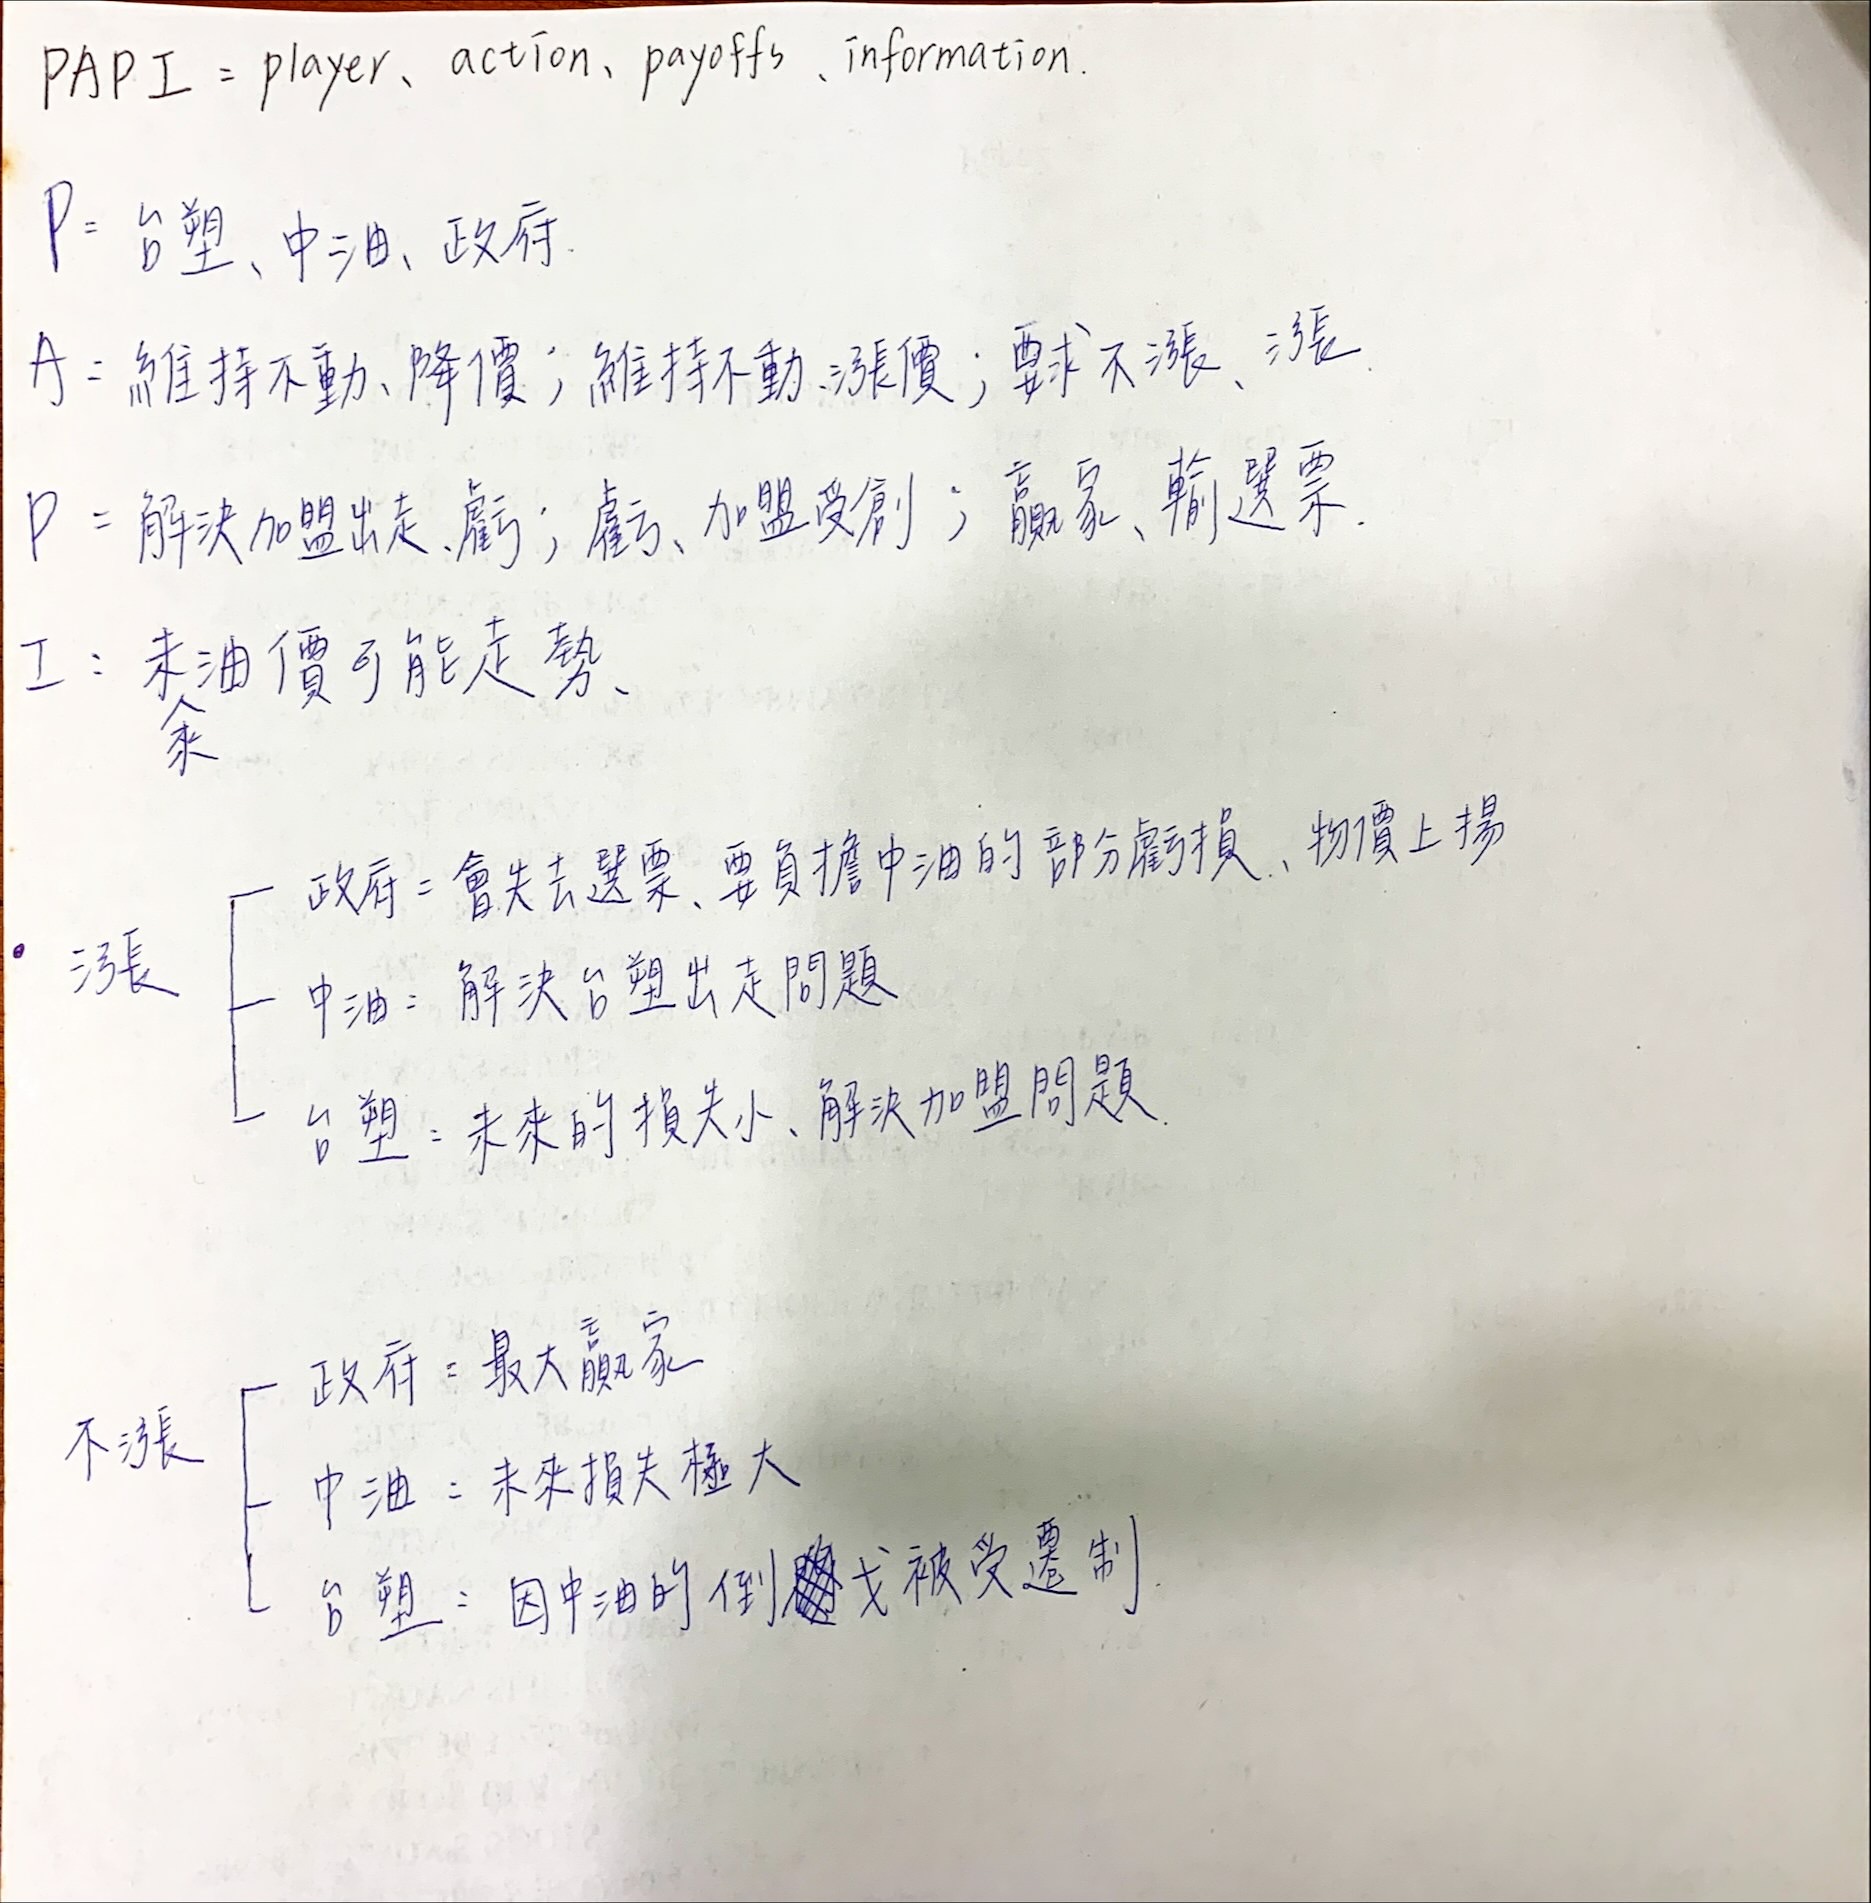 PAPI = player、action、payoffs、information.
P= 台塑、中油、政府.
A= 維持不動、降價；維持不動、漲價；要求不漲、漲.
P = 解決加盟出走、虧；虧、加盟受創；贏家、輸選票.
I : 未來油價可能走勢、
漲
政府 = 會失去選票、要負擔中油的部分虧損、物價上揚
中油 = 解決台塑出走問題
台塑 = 未來的損失小、解決加盟問題.
不漲
政府 = 最大贏家
中油 = 未來損失極大
台塑 = 因中油的倒戈被受遷制.